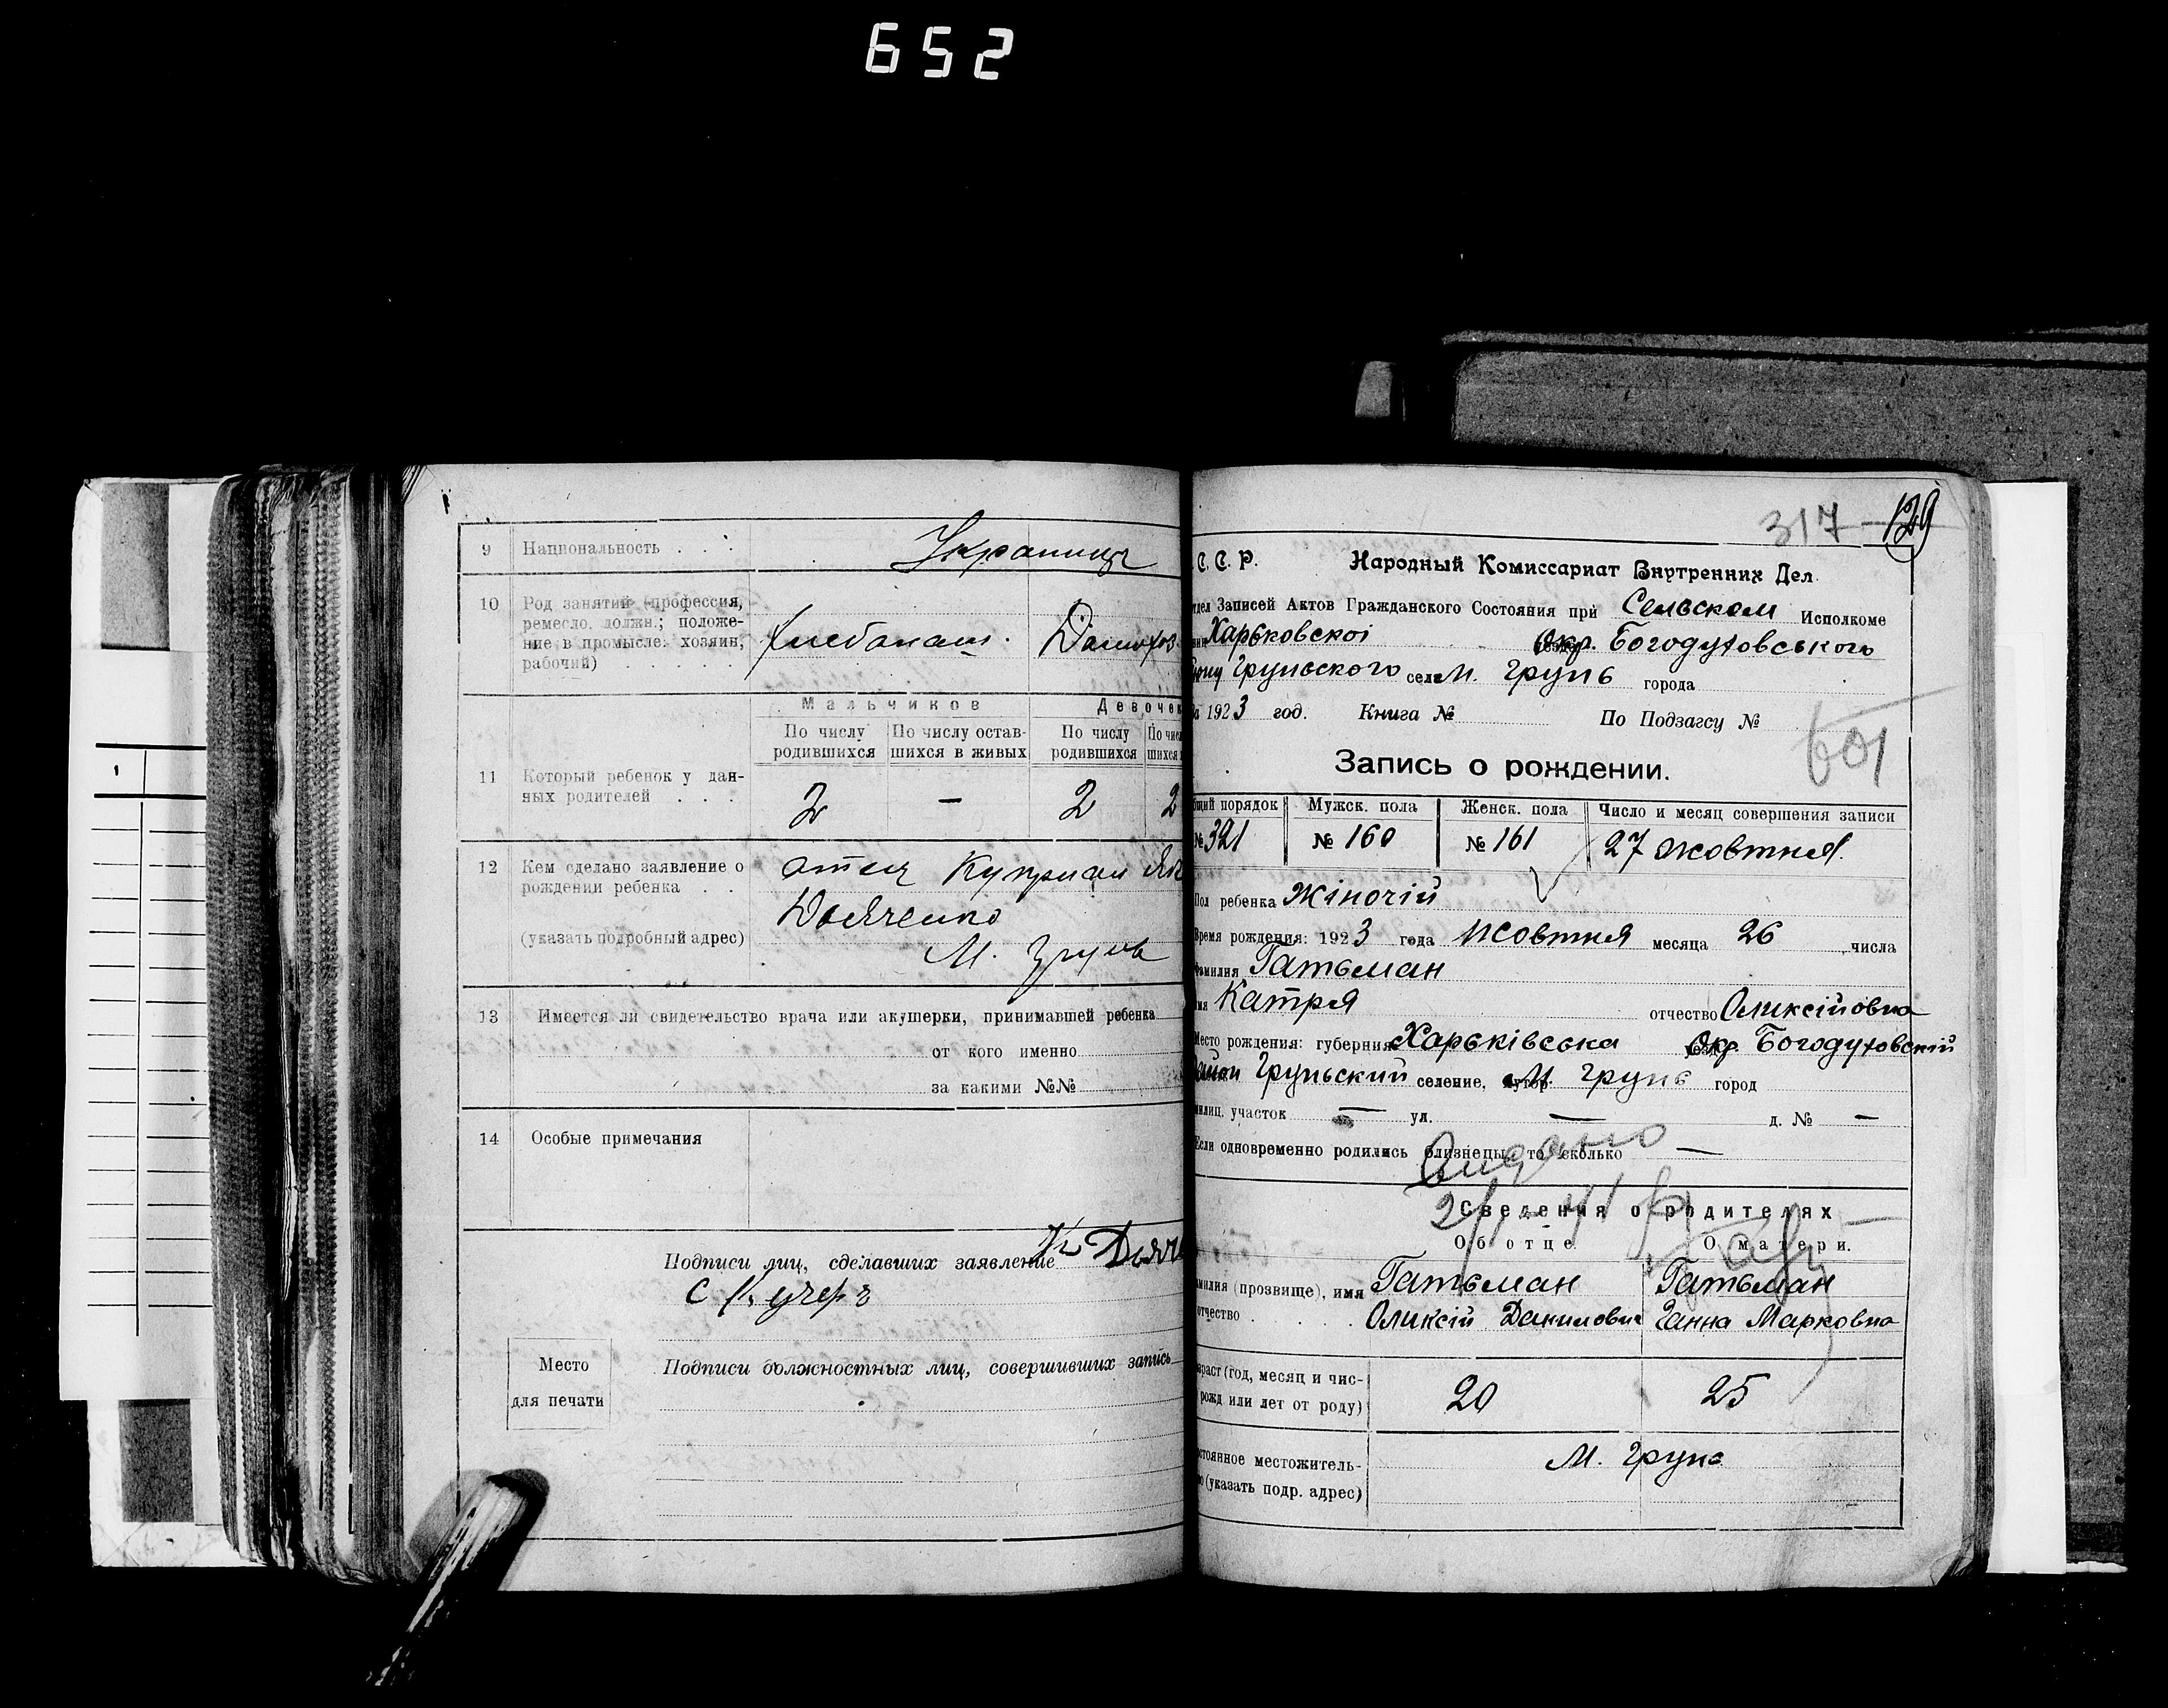 652
9 Национальность . . .
10 Род занятий (профессия,
ремесло, должн.; положе-
ние в промысле: хозяин,
рабочий) . . . . . .
Мальчиков Девочек
По числу родившихся По числу остав-шихся в живых По числу родившихся
2 — 2 2
11 Который ребенок у дан-
ных родителей . . .
12 Кем сделано заявление о
рождении ребенка . .
(указать подробный адрес)
отец Куприан
Дьяченко
М. Грунь
13 Имеется ли свидетельство врача или акушерки, принимавшей ребенка
от кого именно
за какими №№
14 Особые примечания
Подписи лиц, сделавших заявление
С Кучеръ
Место
для печати
Подписи должностных лиц, совершивших запись
317 129
С. С. Р. Народный Комиссариат Внутренних Дел.
Записей Актов Гражданского Состояния при Сельском Исполкоме
Харьковскоі Окр. Богодуховського
Груньского села М. Грунь города
1923 год. Книга № По Подзагсу №
601
Запись о рождении.
порядок Мужск. пола Женск. пола Число и месяц совершения записи
№ 321 № 160 № 161 27 жовтня.
Пол ребенка Жіночій
Время рождения: 1923 года Жовтня месяца 26 числа
Гатьман
Катря отчество Оликсійовна
Место рождения: губерния Харьківська Окр. Богодуховскій
Груньский селение, хутор М. Грунь город
участок — ул. — д. № —
Если одновременно родились близнецы, то сколько —
Сведения о родителях
Об отце. О матери.
(прозвище), имя Гатьман Гатьман
отчество . . . . . Оликсій Данилович Ганна Марковна
(год, месяц и чис-
рожд или лет от роду) 20 25
местожитель-
(указать подр. адрес) М. Грунь